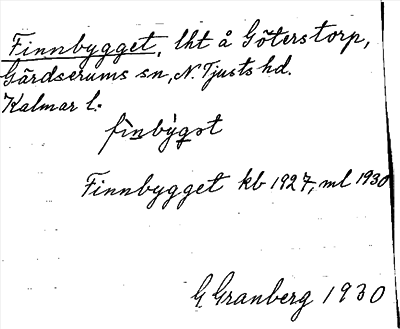 Finnbygget, lht å Göterstorp,
Gärdserums sn, N. Tjusts hd.
Kalmar l.
Finnbygget kb 1927, ml 1930
G Granberg 1930